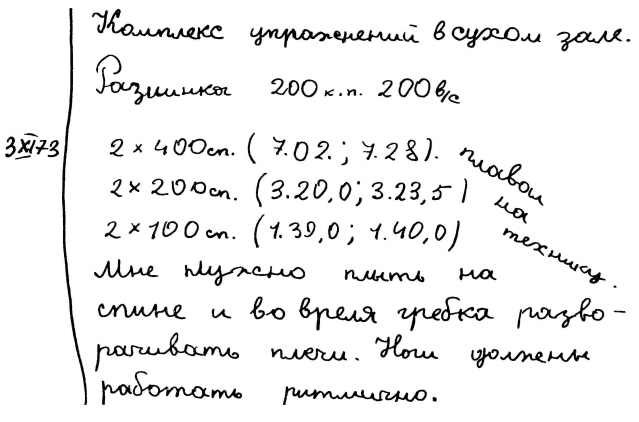 Комплекс упражнений в сухом зале.
Разминка 200 к.п. 200 в/с
3 XI 73
2 × 400 сп. ( 7.02. ; 7.28 ).
2 × 200 сп. (3.20,0 ; 3.23,5 )
2 × 100 сп. (1.39,0 ; 1.40,0)
плавои
на
технику.
Мне нужно плыть на
спине и во время гребка разво-
рачивать плечи. Ноги должены
работать ритмично.